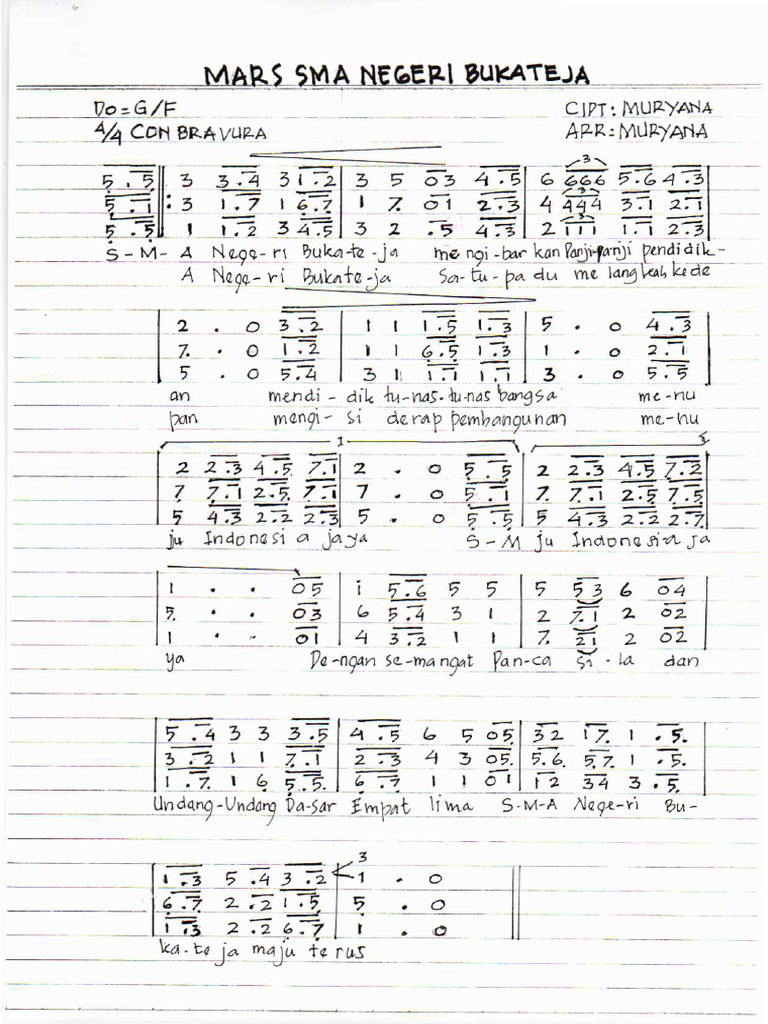 MARS SMA NEGERI BUKATEJA
DO = G/F CIPT: MURYANA
4/4 CON BRAVURA ARR: MURYANA
5 . 5 ||: 3 3 . 4 3 1 . 2 | 3 5 0 3 4 . 5 | 6 6 6 6 5 . 6 4 . 3
5 . 1 : 3 1 . 7 1 6 . 7 | 1 7 . 0 1 2 . 3 | 4 4 4 4 3 . 1 2 . 1
5 . 5 1 1 . 2 3 4 . 5 | 3 2 . 5 4 . 3 | 2 1 1 1 1 . 1 2 . 3
S - M - A Nege - ri Bukate - ja mengi - bar kan Panji-panji pendidik -
A Nege - ri Bukate - ja Sa - tu - pa du me langkah kede
2 . 0 3 . 2 | 1 1 1 . 5 1 . 3 | 5 . 0 4 . 3
7 . 0 1 . 2 | 1 1 6 . 5 1 . 3 | 1 . 0 2 . 1
5 . 0 5 . 4 | 3 1 1 . 1 1 . 1 | 3 . 0 5 . 5
an mendi - dik tu - nas - tu - nas bangsa me - nu
pan mengi - si derap pembangunan me - nu
1 2
2 2 . 3 4 . 5 7 . 1 | 2 . 0 5 . 5 | 2 2 . 3 4 . 5 7 . 2
7 7 . 1 2 . 5 7 . 1 | 7 . 0 5 . 1 | 7 7 . 1 2 . 5 7 . 5
5 4 . 3 2 . 2 2 . 3 | 5 . 0 5 . 5 | 5 4 . 3 2 . 2 2 . 7
ju Indonesi a jaya S - M ju Indonesia ja
1 . . 0 5 | i 5 . 6 5 5 | 5 5 3 6 0 4
5 . . 0 3 | 6 5 . 4 3 1 | 2 7 . 1 2 0 2
1 . . 0 1 | 4 3 . 2 1 1 | 7 2 1 2 0 2
ya De - ngan se - mangat Pan - ca si - la dan
5 . 4 3 3 3 . 5 | 4 . 5 6 5 0 5 | 3 2 1 7 1 . 5
3 . 2 1 1 7 . 1 | 2 . 3 4 3 0 5 | 5 . 6 5 7 1 . 5
1 . 7 1 6 5 . 5 | 6 . 7 1 1 0 1 | 1 2 3 4 3 . 5
Undang - Undang Da - sar Empat lima S - M - A Nege - ri Bu -
3
1 . 3 5 . 4 3 . 2 | 1 . 0
6 . 7 2 . 2 1 . 5 | 5 . 0
1 . 3 2 . 2 6 . 7 | 1 . 0
ka - te ja maju te rus